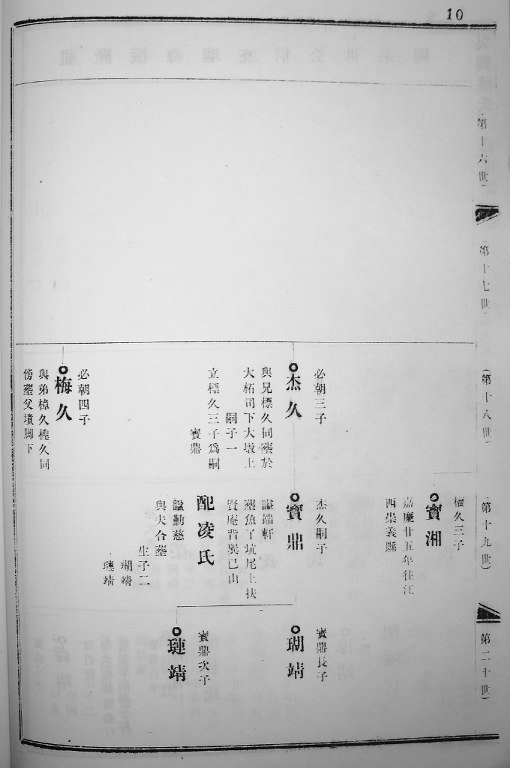 10
第十六世
第十七世
(第十八世)
第十九世)
第二十世)
寶湘
樞久三子
嘉慶廿五年往江
西崇義縣
杰久
必朝三子
與兄標久同塟於
大柘司下大墩上
嗣子一
立標久三子爲嗣
寶鼎
寶鼎
杰久嗣子
諡端軒
塟魚了坑尾上扶
賢庵背巽巳山
配凌氏
諡勤慈
與夫合塟
生子二
瑚靖
璉靖
瑚靖
寶鼎長子
璉靖
寶鼎次子
梅久
必朝四子
與弟樟久樫久同
傍塟父墳脚下